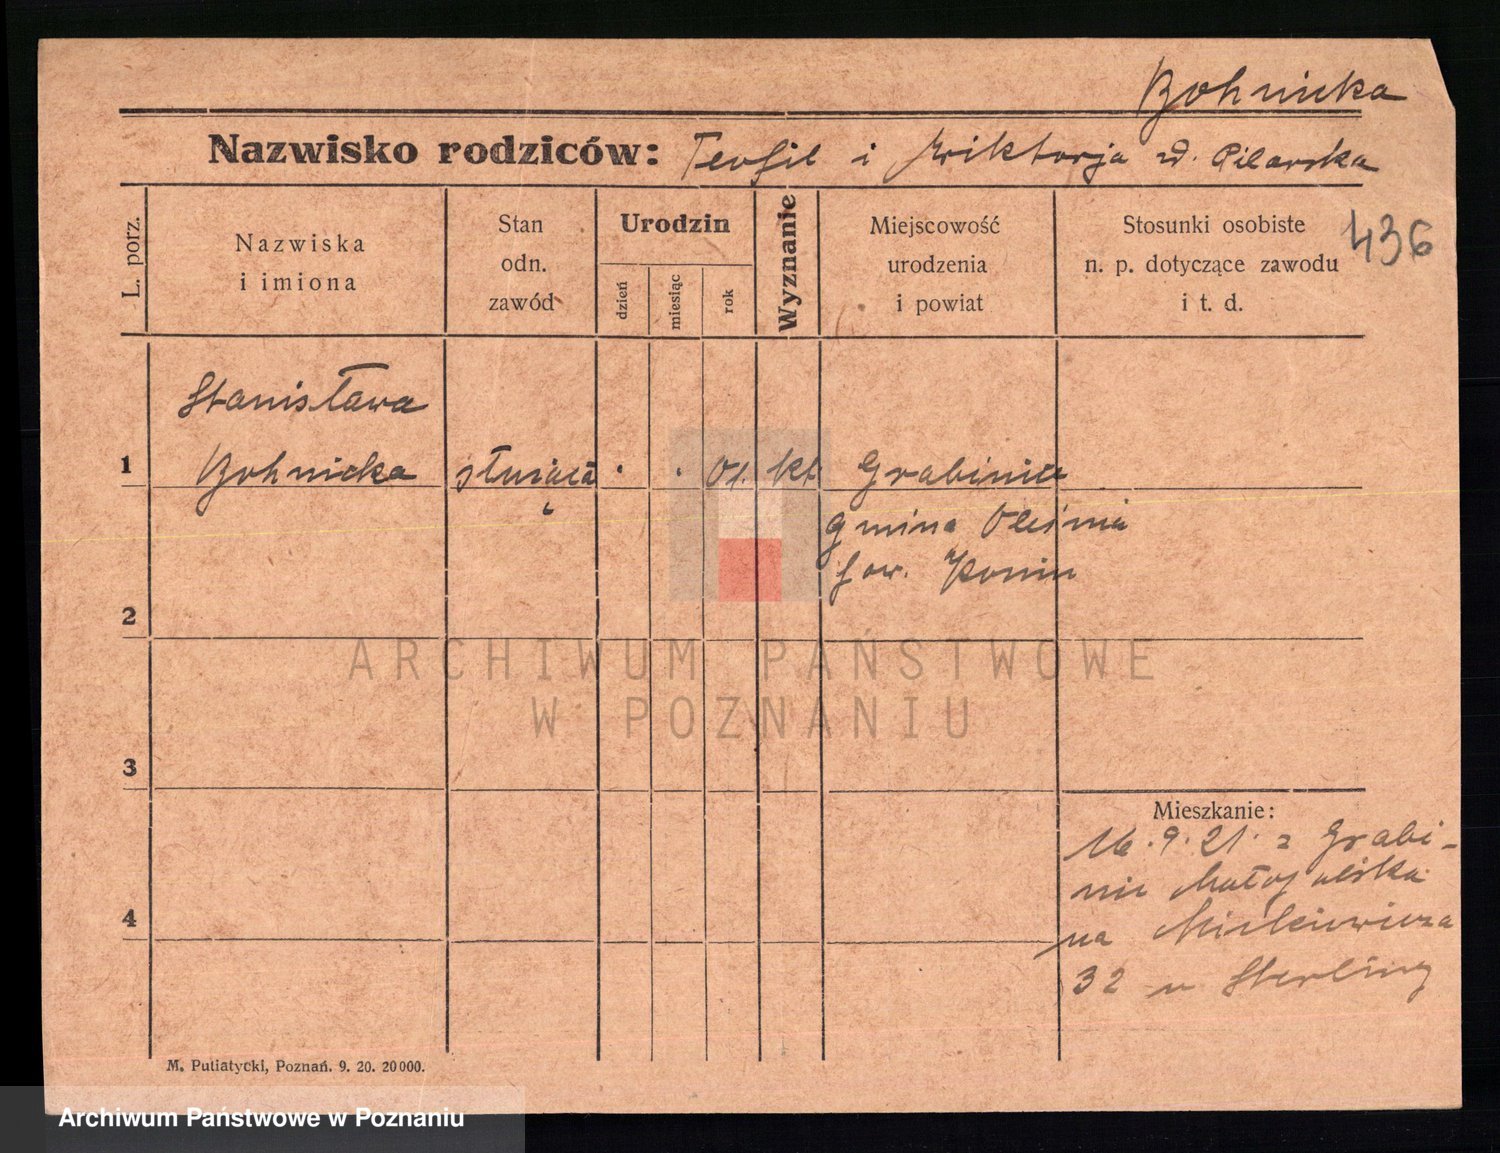 Bohnicka
Nazwisko rodziców: Teofil i Wiktorja z d. Pilarska
436
L. porz.
Nazwiska
i imiona
Stan
odn.
zawód
Urodzin
dzień
miesiąc
rok
Wyznanie
Miejscowość
urodzenia
i powiat
Stosunki osobiste
n. p. dotyczące zawodu
i t. d.
Stanisława
1 Bohnicka służąca 01. kt Grabinie
gmina Oleśnia
pow. Konin
2
3
4
Mieszkanie:
16.9.21. z Grabi-
nie Małopolska
na Mickiewicza
32 u Sterling
M. Putiatycki, Poznań. 9. 20. 20000.
ARCHIWUM PAŃSTWOWE
W POZNANIU
Archiwum Państwowe w Poznaniu